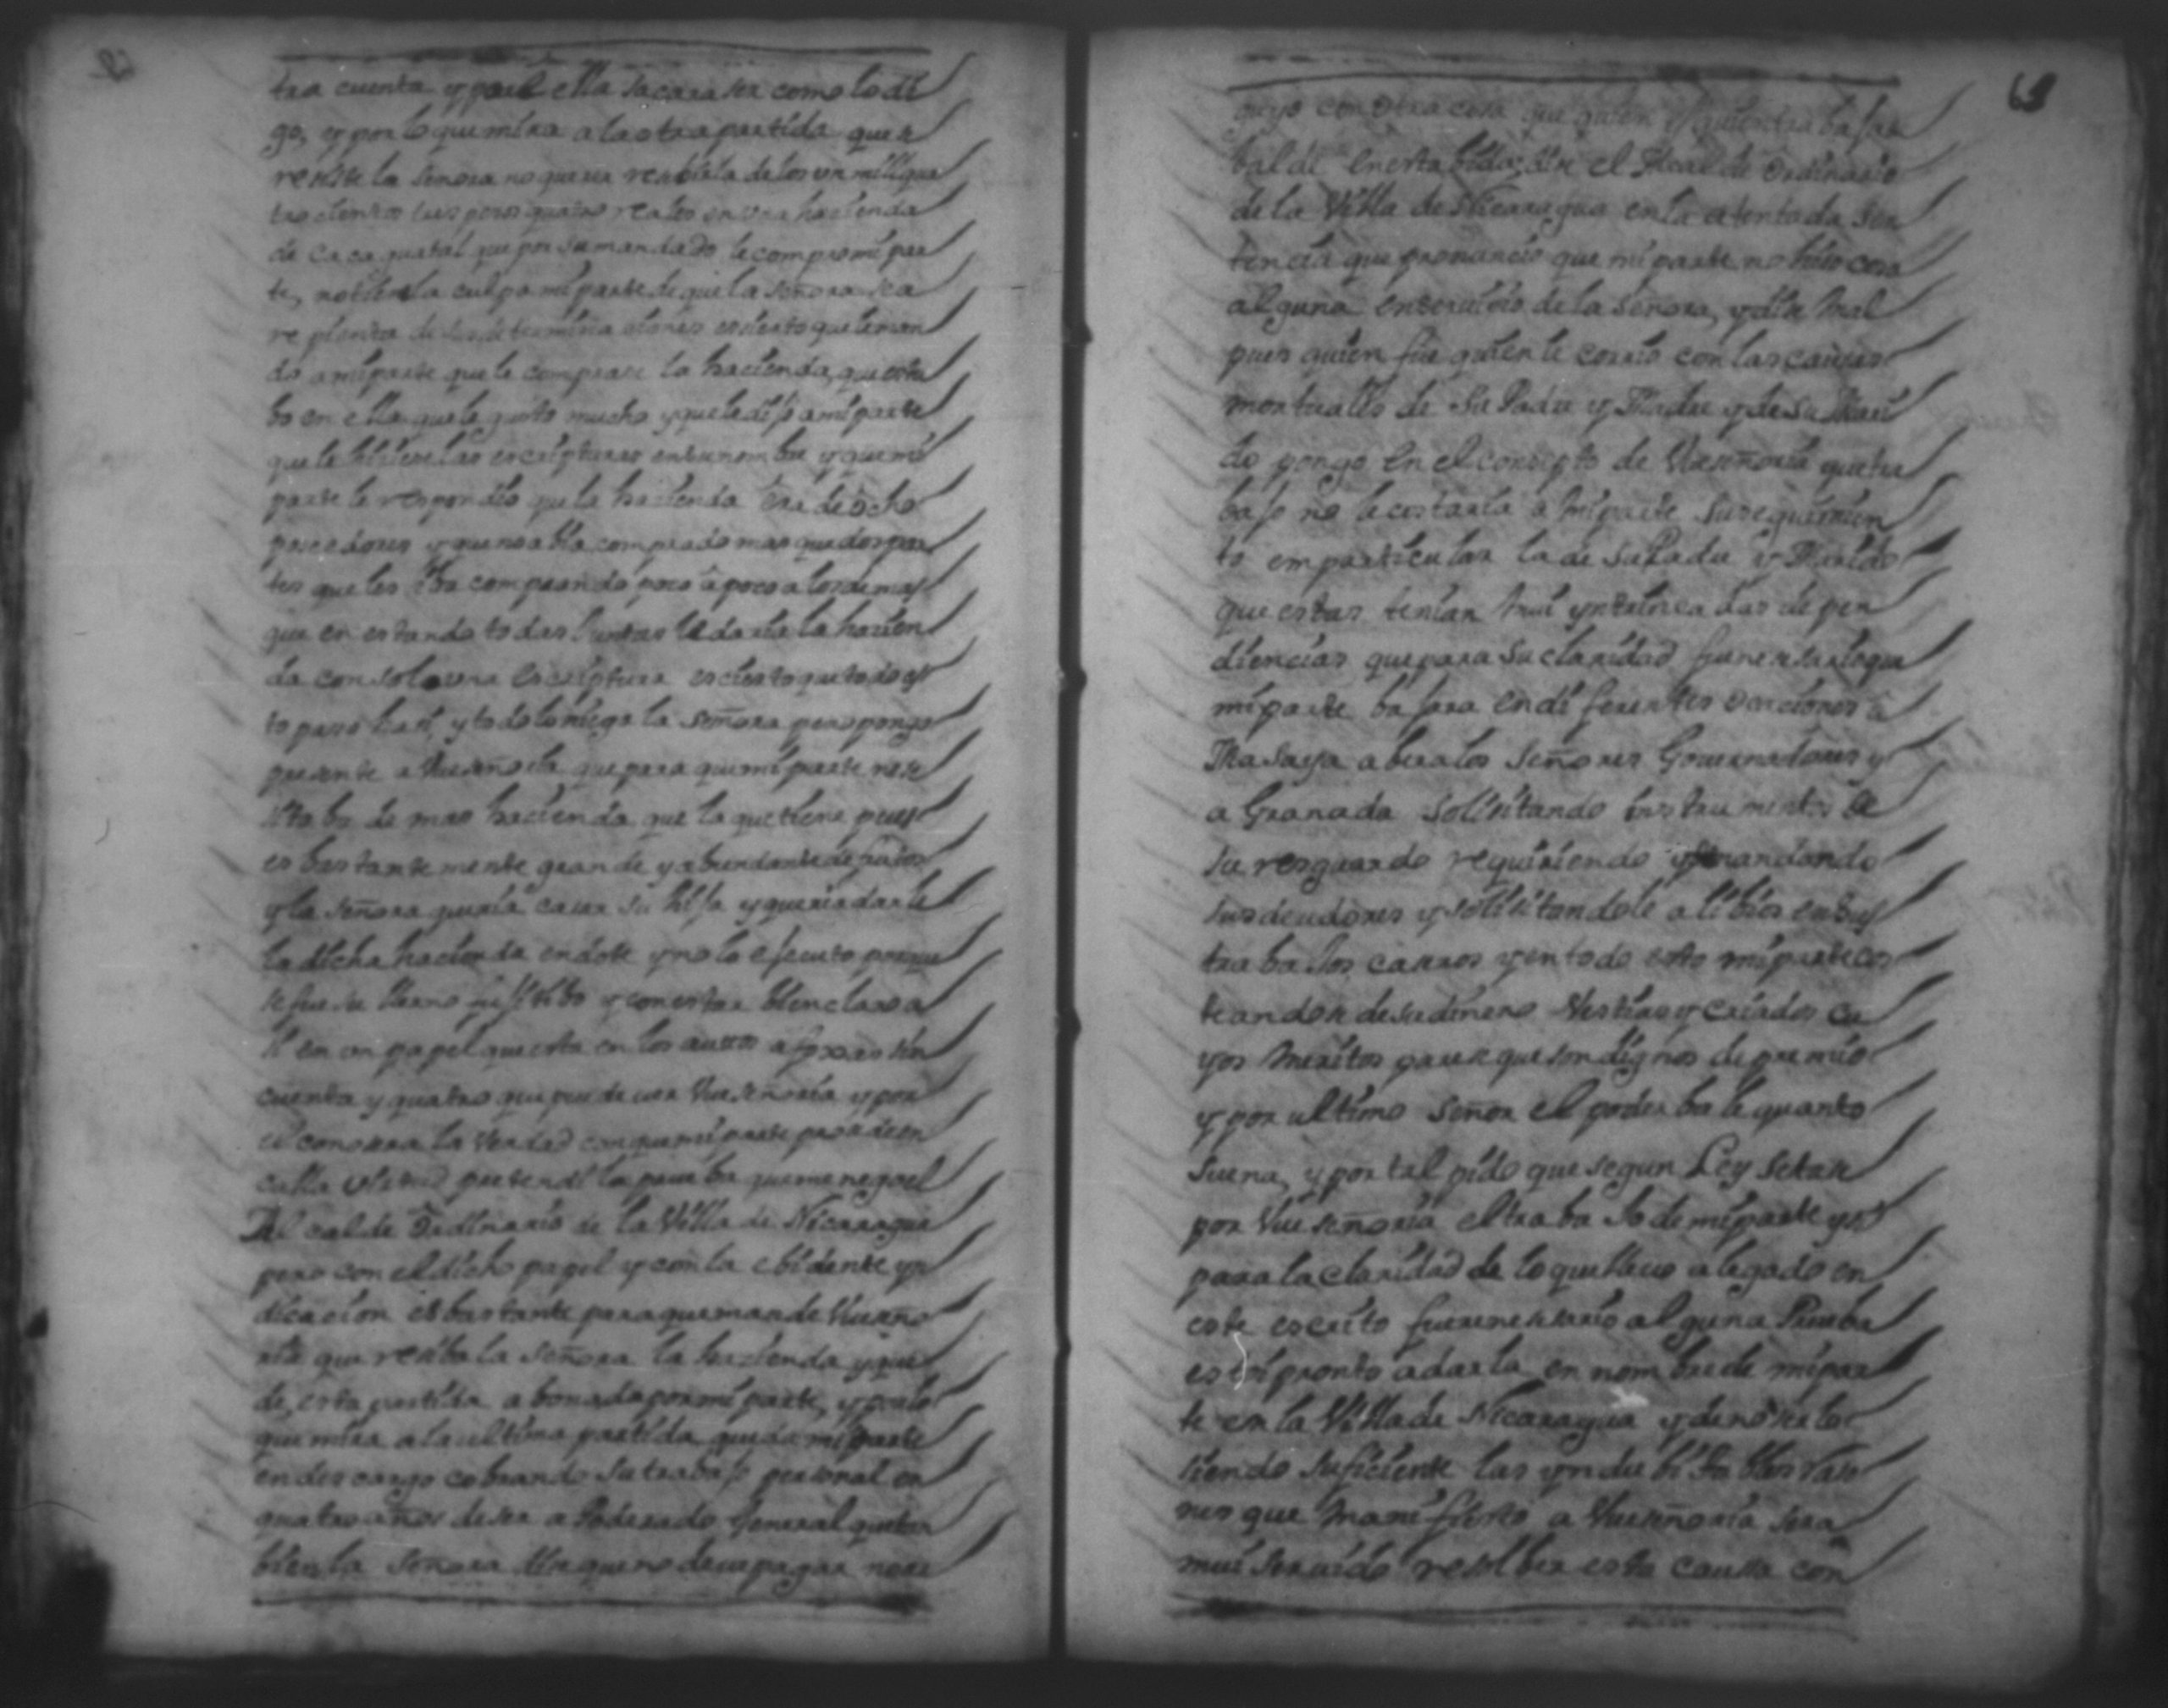 tra cuenta y por ella sacara ser como lo di
go, y por lo que mira a la otra partida que se
resiste la señora no querer resibirla de los un mill qua
trocientos seis pesos quatro reales en una hacienda
de cacaguatal que por su mandado le compro mi par
te, no tiene la culpa mi parte de que la señora sea
de sus determinaciones es cierto que le man
do a mi parte que le comprase la hacienda, que estu
bo en ella que le gusto mucho y que le dijo a mi parte
que le hiciese las escripturas en su nombre y que mi
parte le respondio que la hacienda era de ocho
posedores y que no abia comprado mas que dos par
tes que les iba comprando poco a poco a los demas
que en estando todas juntas le daria la hacien
da con sola una escriptura es cierto que todo es
to paso hasi, y todo lo niega la señora pero pongo
presente a Vueseñoria que para que mi parte nese
sitaba de mas hacienda que la que tiene pues
es bastantemente grande y abundante de frutos
y la señora queria casar su hija y queria darle
la dicha hacienda en dote y no lo ejecuto porque
se fue su Yerno y con estar bien claro a
si en un papel que esta en los autos a foxas sin
cuenta y quatro que puede ver Vueseñoria y por
el conosera la verdad con que mi parte prosede en
pretendi la prueba que me nego el
Alcalde Ordinario de la Villa de Nicaragua
pero con el dicho papel y con la ebidente yn
dicacion es bastante para que mande Vueseño
ria que resiba la señora la hacienda y que
de, esta partida abonada por mi parte, y por lo
que mira a la ultima partida queda mi parte
en descargo cobrando su trabajo personal en
quatro años de ser apoderado General que tam
bien la señora dise que no deve pagar no se
guyo con otra cosa que quien
balde en esta bida, dise el Alcalde Ordinario
de la Villa de Nicaragua en la atentada sen
tencia que pronuncio que mi parte no hiso cosa
alguna en servicio de la señora, y dise mal
pues quien fue quien le corrio con las causas
mortuales de su Padre y Madre y de su Mari
do pongo en el consepto de Vueseñoria que tra
bajo no le costaria a mi parte su seguimien
to em particular la de su Padre y Marido
que estas tenian mui yntrincadas depen
diencias que para su claridad fue nesesario que
mi parte bajara en diferentes ocaciones a
Masaya a ber a los señores Governadores y
a Granada solisitando instrumentos de
su resguardo requiriendo y demandando
sus deudores y solisitandole alibios en sus
trabajos caseros y en todo esto mi parte cos
teandose de su dinero Vestias y criados cu
yos meritos parese que son dignos de premio
y por ultimo señor el poder bale quanto
suena, y por tal pido que segun Ley se tase
por Vueseñoria el trabajo de mi parte y si
para la claridad de lo que llevo alegado en
este escrito fuere nesesario alguna Prueba
estoi pronto a darla en nombre de mi par
te en la Villa de Nicaragua y de no ser lo
siendo suficiente las yndubitables raso
nes que manifiesto a Vueseñoria sera
mui servido resolber esta causa con
68